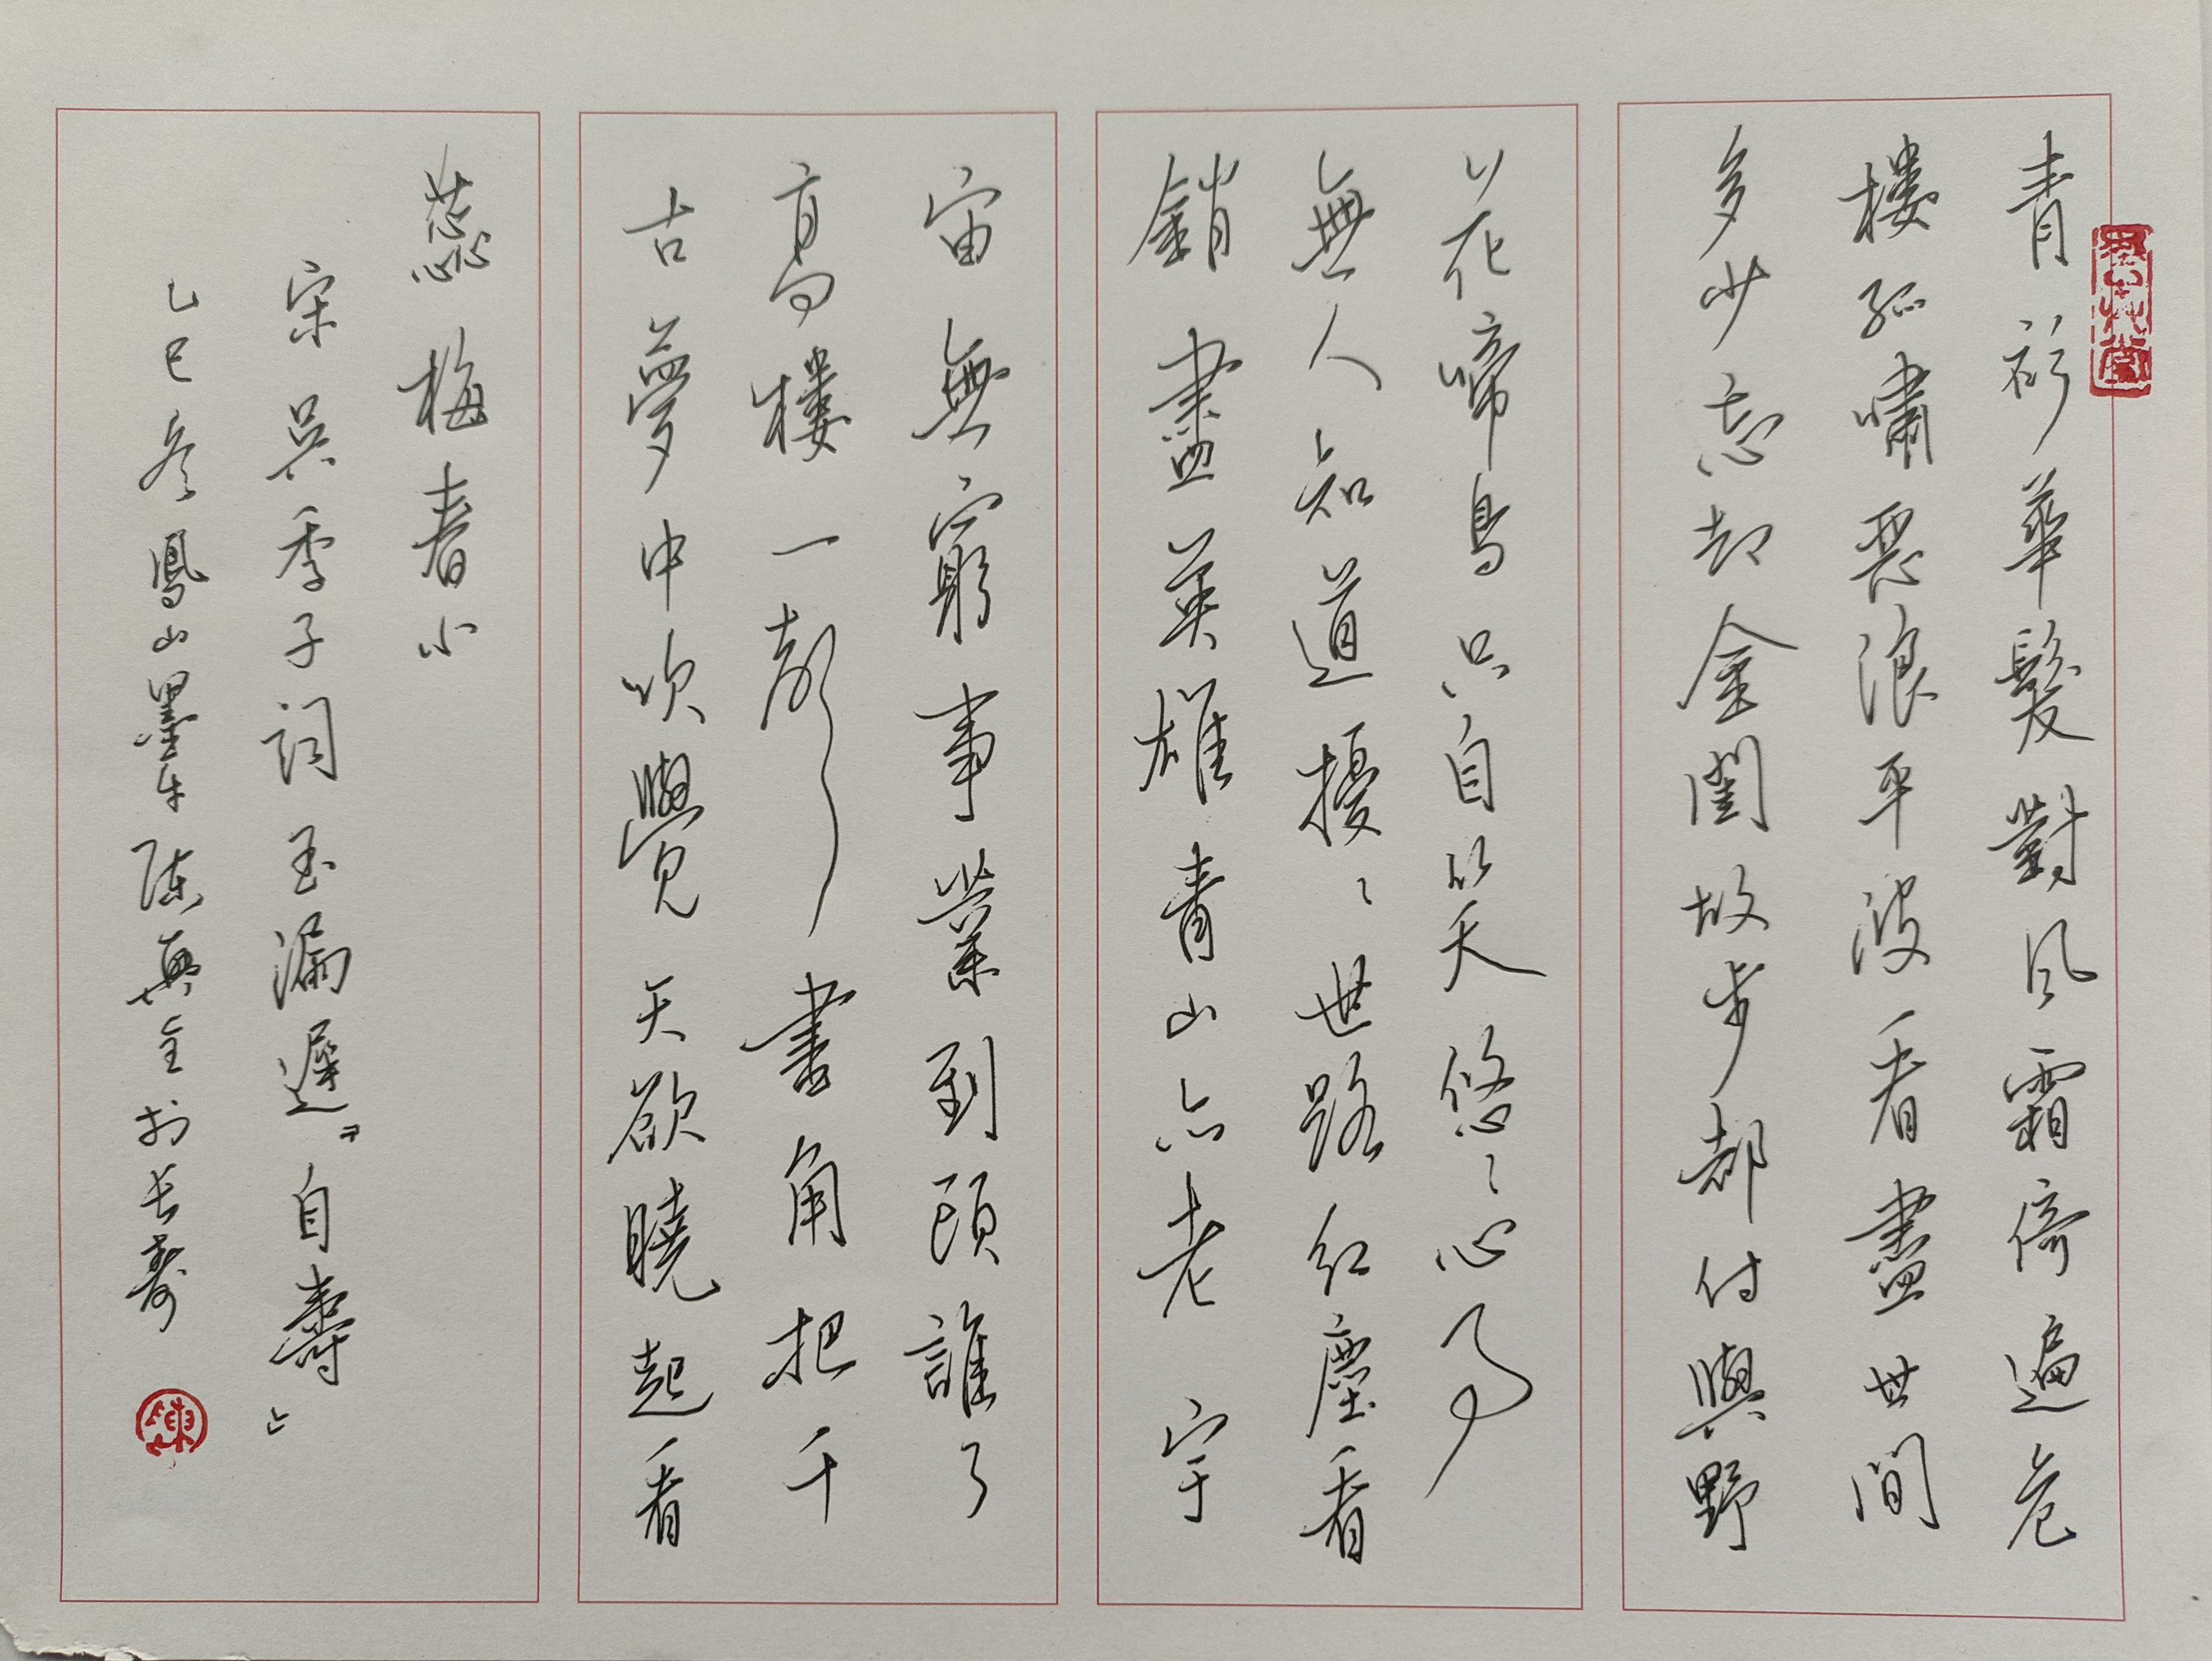 青衫華髮對風霜倚遍危
樓孤嘯惡浪平波看盡世間
多少忘却金闺故步都付與野
花啼鳥只自笑天悠〻心事
無人知道擾〻世路紅塵看
銷盡英雄青山亦老宇
宙無窮事業到頭誰了
高樓一聲畫角把千
古夢中吹覺天欲曉起看
蕊梅春小
宋吴季子詞玉漏遲『自壽』
乙巳冬鳳山墨車陳興全於长壽